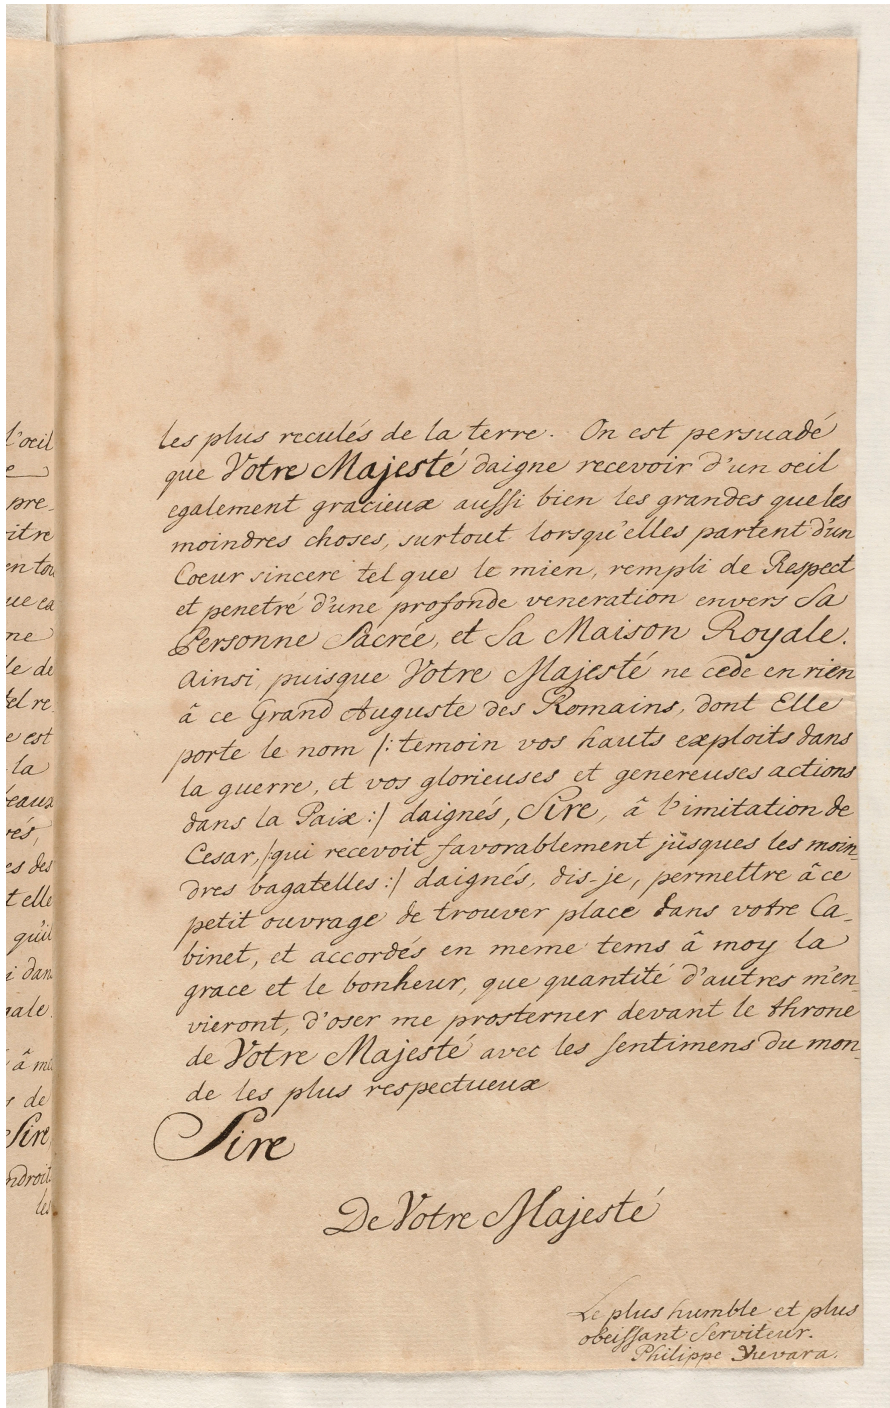 les plus reculés de la terre. On est persuadé
que Votre Majesté daigne recevoir d'un oeil
egalement gracieux aussi bien les grandes que les
moindres choses, surtout lorsqu'elles partent d'un
Coeur sincere tel que le mien, rempli de Respect
et penetré d'une profonde veneration envers Sa
Personne Sacrée, et Sa Maison Royale.
Ainsi, puisque Votre Majesté ne cede en rien
â ce Grand Auguste des Romains, dont Elle
porte le nom /: temoin vos hauts exploits dans
la guerre, et vos glorieuses et genereuses actions
dans la Paix :/ daignés, Sire, â l'imitation de
Cesar, /:qui recevoit favorablement jusques les moin-
dres bagatelles :/ daignés, dis-je, permettre â ce
petit ouvrage de trouver place dans votre Ca-
binet, et accordés en meme tems â moy la
grace et le bonheur, que quantité d'autres m'en-
vieront, d'oser me prosterner devant le throne
de Votre Majesté avec les sentimens du mon-
de les plus respectueux
Sire
De Votre Majesté
Le plus humble et plus
obeissant Serviteur.
Philippe
l'oeil
pre-
itre
en tou
ue ca
me
le de
tel re
e est
la
eaux
vés,
es des
t elle
qu'il
i dans
yale.
â
s de
Sire
ndroits
les